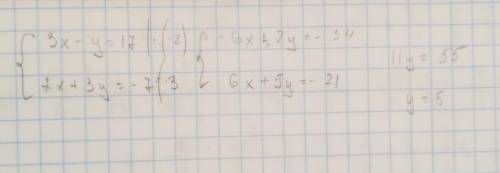 3x - y = 17 | · (-2)
2x + 3y = -7 | · 3
-6x + 2y = -34
6x + 9y = -21
11y = 55
y = 5